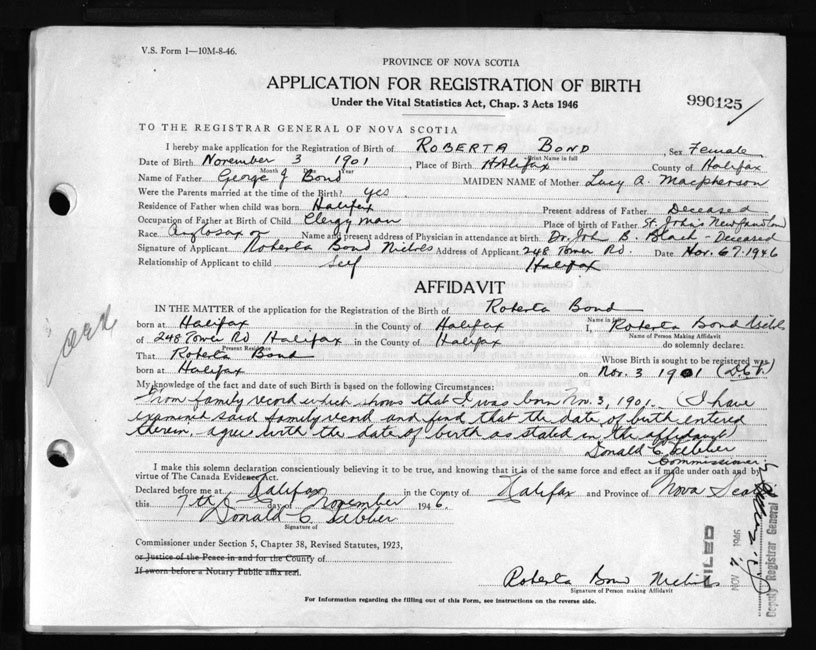 V.S. Form 1—10M-8-46.
PROVINCE OF NOVA SCOTIA
APPLICATION FOR REGISTRATION OF BIRTH
Under the Vital Statistics Act, Chap. 3 Acts 1946
990125
TO THE REGISTRAR GENERAL OF NOVA SCOTIA
I hereby make application for the Registration of Birth of ROBERTA BOND, Sex Female
Print Name in full
Date of Birth November 3 1901, Place of Birth Halifax County of Halifax
Month Date Year
Name of Father George J Bond MAIDEN NAME of Mother Lucy A. Macpherson
Were the Parents married at the time of the Birth? yes.
Residence of Father when child was born Halifax Present address of Father Deceased
Occupation of Father at Birth of Child Clergyman Place of birth of Father St. John's Newfoundland
Race Anglosaxon Name and present address of Physician in attendance at birth Dr. John B. Black - Deceased
Signature of Applicant Roberta Bond Nichols Address of Applicant 248 Tower Rd. Date Nov. 67. 1946
Relationship of Applicant to child self Halifax
AFFIDAVIT
IN THE MATTER of the application for the Registration of the Birth of Roberta Bond
Name in full
born at Halifax in the County of Halifax I, Roberta Bond Nichols
Name of Person Making Affidavit
of 248 Tower Rd Halifax in the County of Halifax do solemnly declare:
Present Residence
That Roberta Bond Whose Birth is sought to be registered was
born at Halifax on Nov. 3 1901
My knowledge of the fact and date of such Birth is based on the following Circumstances:
From family record which shows that I was born Nov. 3, 1901. (I have
examined said family record and find that the date of birth entered
therein, agree with the date of birth as stated in the affidavit
Donald C.
Commissioner
I make this solemn declaration conscientiously believing it to be true, and knowing that it is of the same force and effect as if made under oath and by
virtue of The Canada Evidence Act.
Declared before me at Halifax in the County of Halifax and Province of Nova Scotia
this 7th day of November 1946.
Donald C.
Signature of
Commissioner under Section 5, Chapter 38, Revised Statutes, 1923,
or Justice of the Peace in and for the County of
If sworn before a Notary Public affix seal.
Roberta Bond Nichols
Signature of Person making Affidavit
For Information regarding the filling out of this Form, see instructions on the reverse side.
FILED
NOV 7 1946
Deputy Registrar General